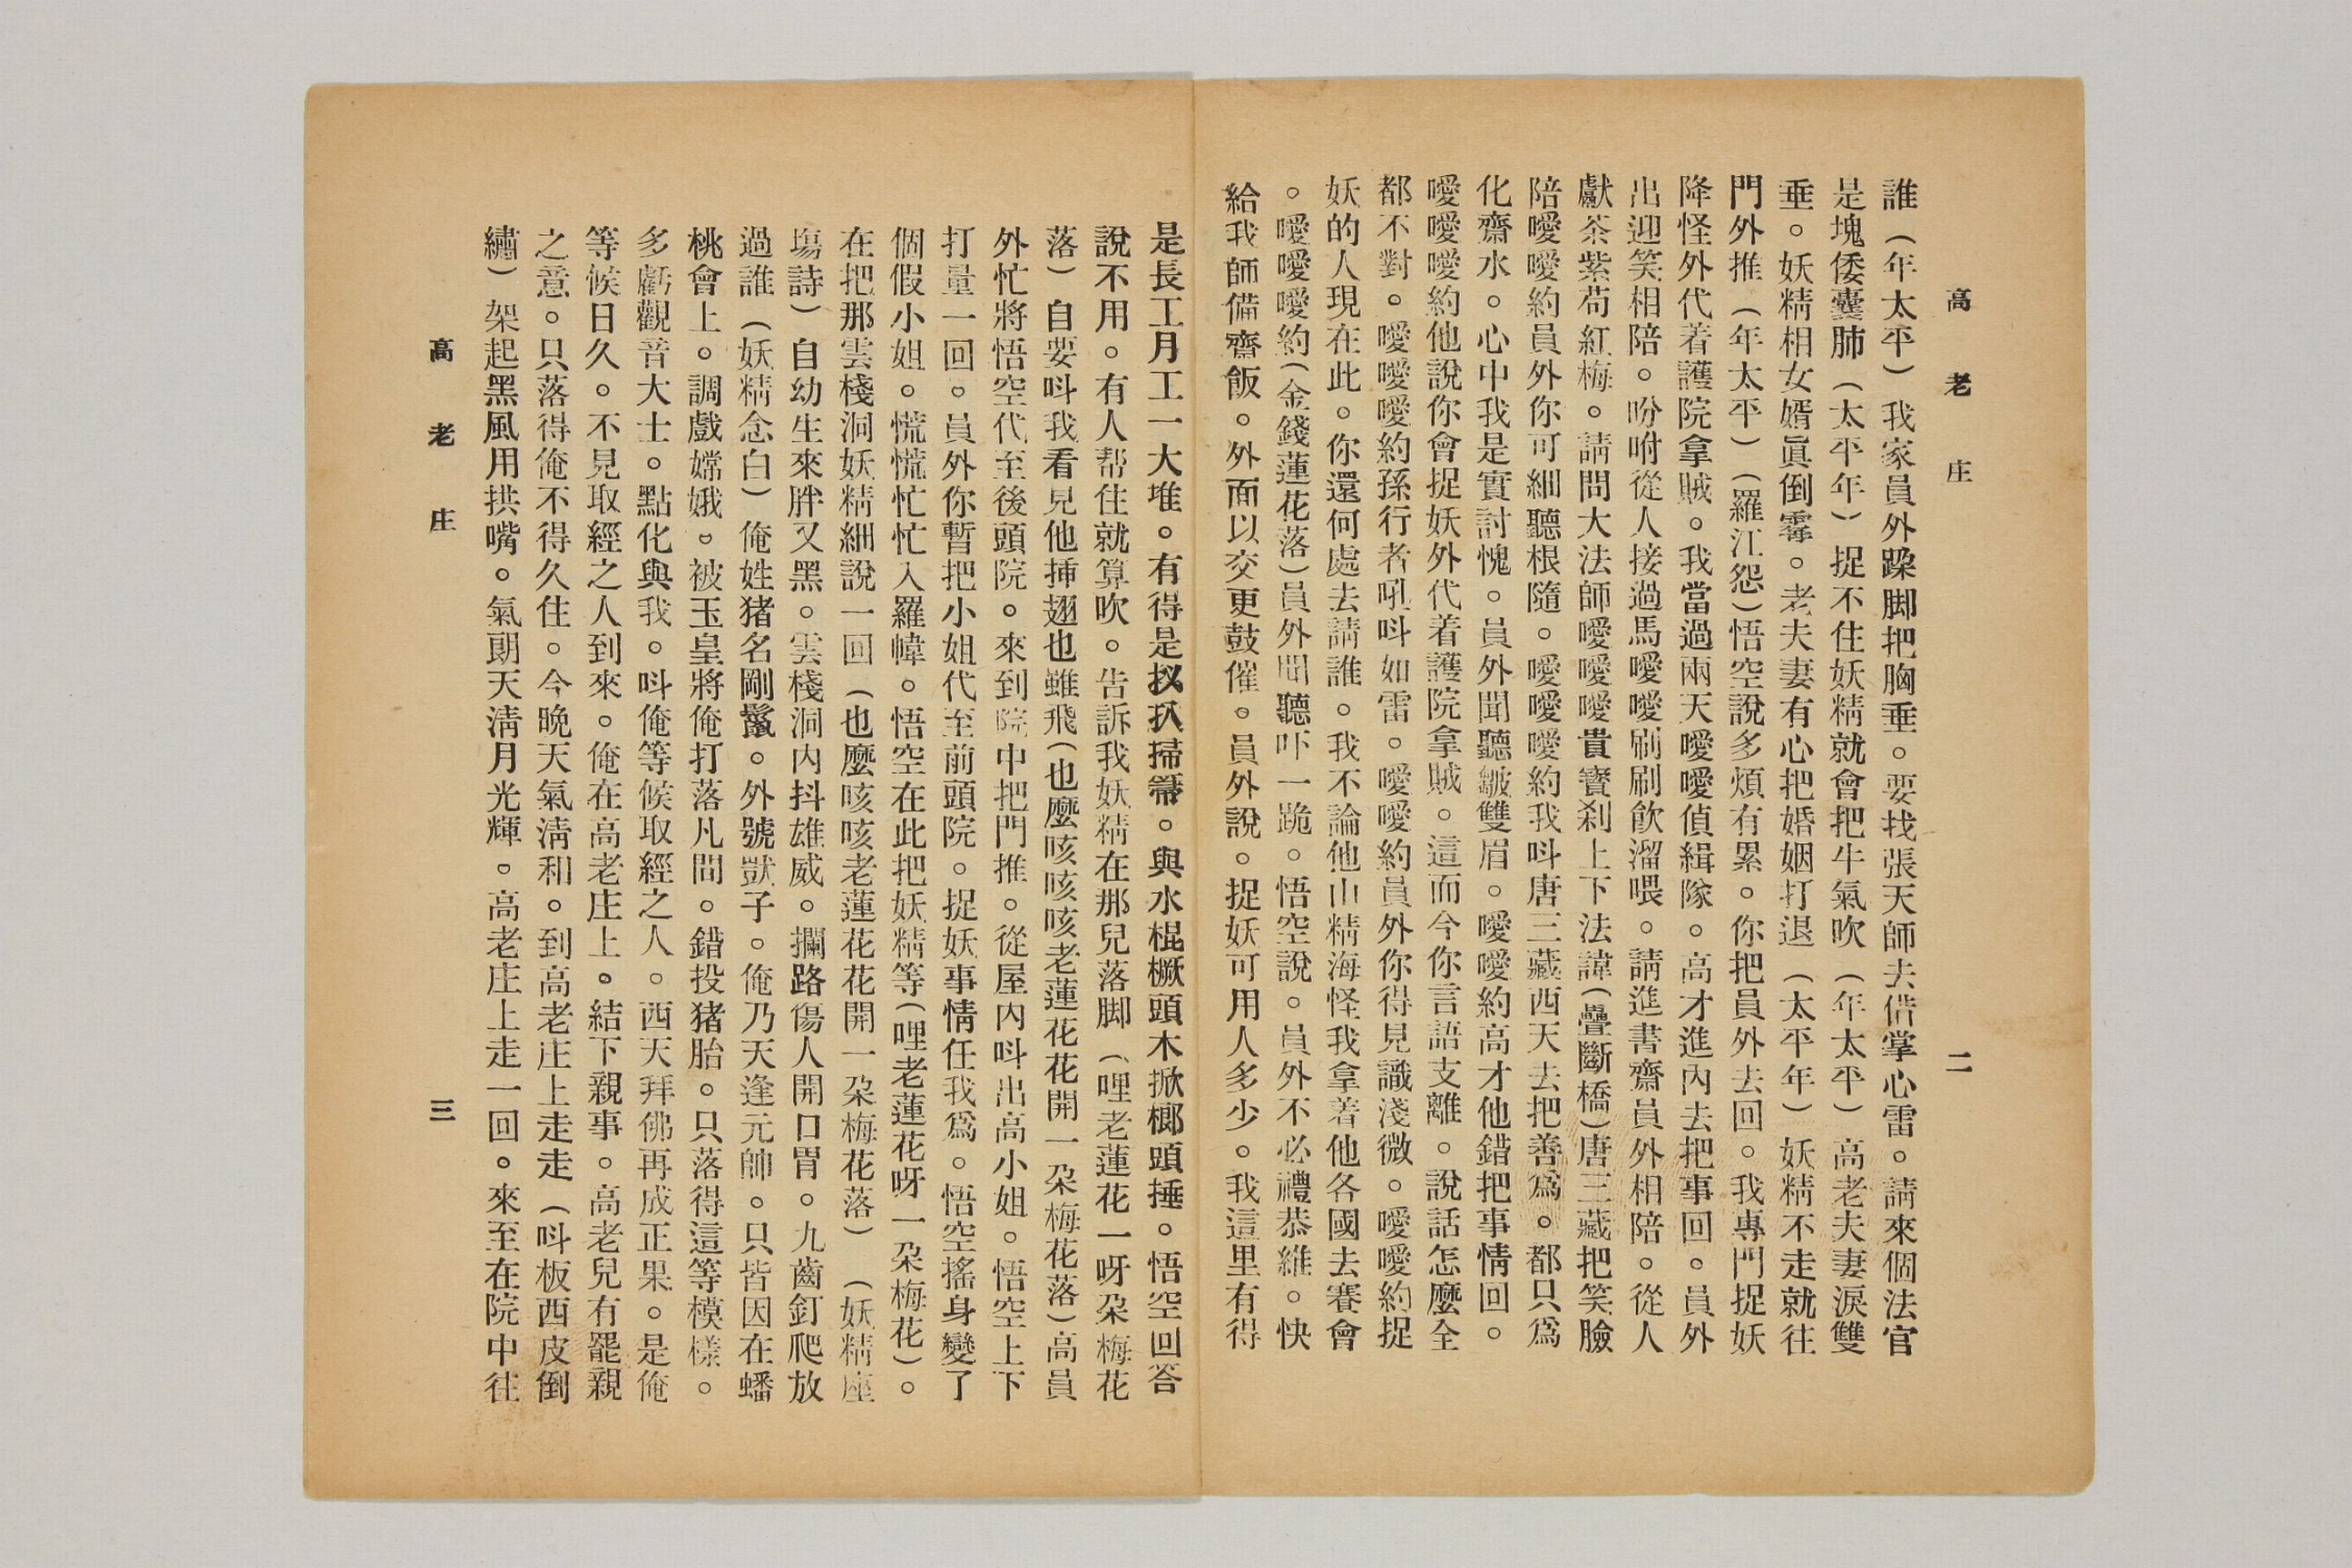 高老庄　二
誰（年太平）我家員外躁脚把胸垂。要找張天師去借掌心雷。請來個法官
是塊倭囊肺（太平年）捉不住妖精就會把牛氣吹（年太平）高老夫妻淚雙
垂。妖精相女婿眞倒霉。老夫妻有心把婚姻打退（太平年）妖精不走就往
門外推（年太平）（羅江怨）悟空說多煩有累。你把員外去回。我專門捉妖
降怪外代着護院拿賊。我當過兩天噯噯偵緝隊。高才進內去把事回。員外
出迎笑相陪。吩咐從人接過馬噯噯刷刷飲溜喂。請進書齋員外相陪。從人
獻茶紫苟紅梅。請問大法師噯噯噯貴寶刹上下法諱（疊斷橋）唐三藏把笑臉
陪噯噯約員外你可細聽根隨。噯噯噯約我呌唐三藏西天去把善爲。都只爲
化齋水。心中我是實討愧。員外聞聽皺雙眉。噯噯約高才他錯把事情回。
噯噯噯約他說你會捉妖外代着護院拿賊。這而今你言語支離。說話怎麼全
都不對。噯噯噯約孫行者吼呌如雷。噯噯約員外你得見識淺微。噯噯約捉
妖的人現在此。你還何處去請誰。我不論他山精海怪我拿着他各國去賽會
。噯噯噯約（金錢蓮花落）員外聞聽吓一跪。悟空說。員外不必禮恭維。快
給我師備齋飯。外面以交更鼓催。員外說。捉妖可用人多少。我這里有得
是長工月工一大堆。有得是扠扒掃箒。與水棍橛頭木掀榔頭捶。悟空回答
說不用。有人帮住就算吹。告訴我妖精在那兒落脚（哩老蓮花一呀朶梅花
落）自要呌我看見他揷翅也雖飛（也麼咳咳咳老蓮花花開一朶梅花落）高員
外忙將悟空代至後頭院。來到院中把門推。從屋內呌出高小姐。悟空上下
打量一回。員外你暫把小姐代至前頭院。捉妖事情任我爲。悟空搖身變了
個假小姐。慌慌忙忙入羅幃。悟空在此把妖精等（哩老蓮花呀一朶梅花）。
在把那雲棧洞妖精細說一回（也麼咳咳老蓮花花開一朶梅花落）（妖精座
塲詩）自幼生來胖又黑。雲棧洞內抖雄威。攔路傷人開口胃。九齒釘爬放
過誰（妖精念白）俺姓猪名剛鬣。外號獃子。俺乃天逢元帥。只皆因在蟠
桃會上。調戲嫦娥。被玉皇將俺打落凡間。錯投猪胎。只落得這等模樣。
多虧觀音大士。點化與我。呌俺等候取經之人。西天拜佛再成正果。是俺
等候日久。不見取經之人到來。俺在高老庄上。結下親事。高老兒有罷親
之意。只落得俺不得久住。今晚天氣淸和。到高老庄上走走（呌板西皮倒
繡）架起黑風用拱嘴。氣朗天淸月光輝。高老庄上走一回。來至在院中往
高老庄　三